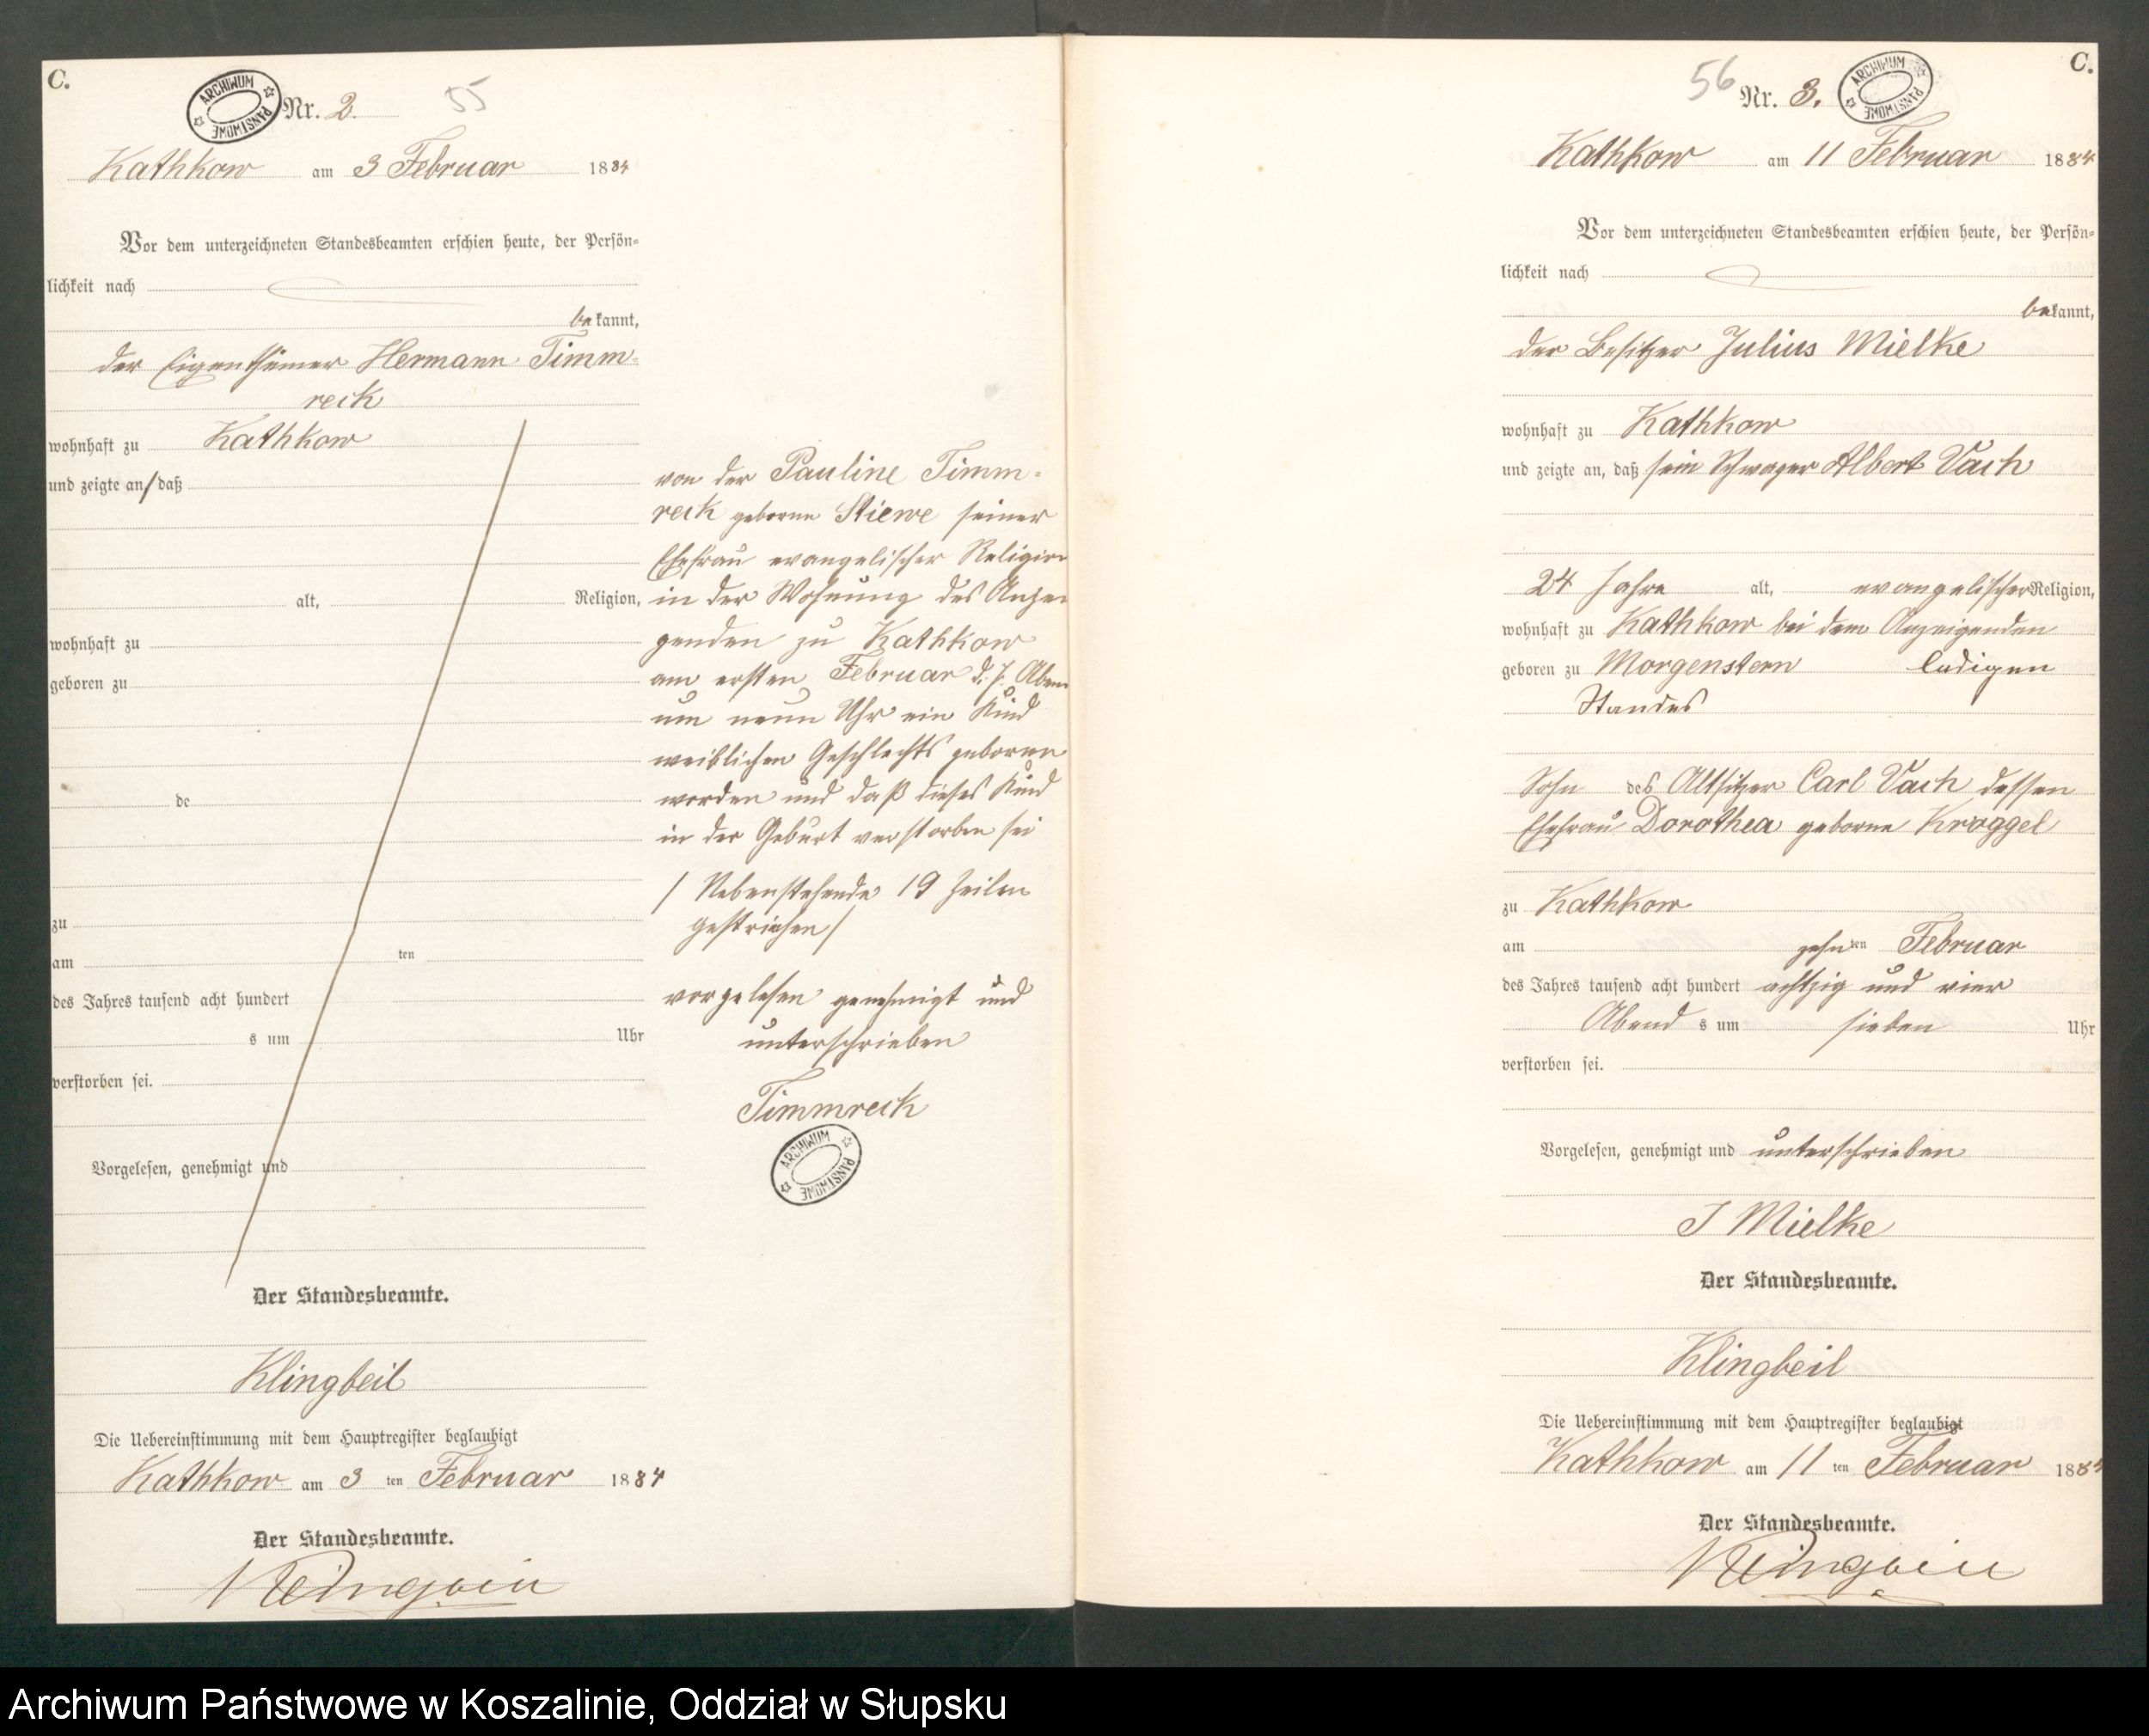 C.
ARCHIWUM PAŃSTWOWE
Nr. 2.
55
Kathkow am 3 Februar 1884
Vor dem unterzeichneten Standesbeamten erschien heute, der Persön=
lichkeit nach
bekannt,
der Eigenthümer Hermann Timm=
reck
wohnhaft zu Kathkow
und zeigte an/daß
alt, Religion,
wohnhaft zu
geboren zu
de
zu
am ten
des Jahres tausend acht hundert
s um Uhr
verstorben sei.
Vorgelesen, genehmigt und
von der Pauline Timm=
reck geborne Stiewe seiner
Ehefrau evangelischer Religion
in der Wohnung des Anzei
genden zu Kathkow
am ersten Februar d. J. Abend
um neun Uhr ein Kind
weiblichen Geschlechts geboren
worden und daß dieses Kind
in der Geburt verstorben sei
/ Nebenstehende 19 Zeilen
gestrichen /
vorgelesen genehmigt und
unterschrieben
Timmreck
ARCHIWUM PAŃSTWOWE
Der Standesbeamte.
Klingbeil
Die Uebereinstimmung mit dem Hauptregister beglaubigt
Kathkow am 3 ten Februar 1884
Der Standesbeamte.
Klingbeil
C.
56
Nr. 3.
ARCHIWUM PAŃSTWOWE
Kathkow am 11 Februar 1884
Vor dem unterzeichneten Standesbeamten erschien heute, der Persön=
lichkeit nach
bekannt,
der Besitzer Julius Mielke
wohnhaft zu Kathkow
und zeigte an, daß sein Schwager Albert Vach
24 Jahre alt, evangelischer Religion,
wohnhaft zu Kathkow bei dem Anzeigenden
geboren zu Morgenstern ledigen
Standes
Sohn des Altsitzer Carl Vach dessen
Ehefrau Dorothea geborne Kroggel
zu Kathkow
am zehn ten Februar
des Jahres tausend acht hundert achtzig und vier
Abend s um sieben Uhr
verstorben sei.
Vorgelesen, genehmigt und unterschrieben
J Mielke
Der Standesbeamte.
Klingbeil
Die Uebereinstimmung mit dem Hauptregister beglaubigt
Kathkow am 11 ten Februar 1884
Der Standesbeamte.
Klingbeil
Archiwum Państwowe w Koszalinie, Oddział w Słupsku